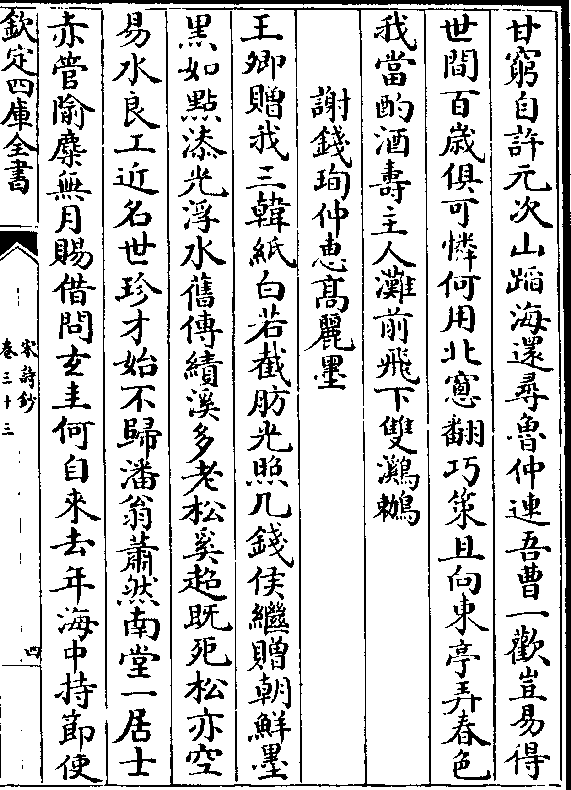 甘窮自許元次山蹈海還尋魯仲連吾曹一歡豈易得
世間百歲俱可憐何用北窻翻巧策且向東亭弄春色
我當酌酒壽主人灘前飛下雙鸂鶒
謝錢珣仲惠髙麗墨
王卿贈我三韓紙白若截肪光照几錢侯繼贈朝鮮墨
黒如點漆光浮水舊傳績溪多老松奚超既死松亦空
易水良工近名世珍才始不歸潘翁蕭然南堂一居士
赤管隃麋無月賜借問玄圭何自來去年海中持節使
欽定四庫全書
宋詩鈔
卷三十三
四